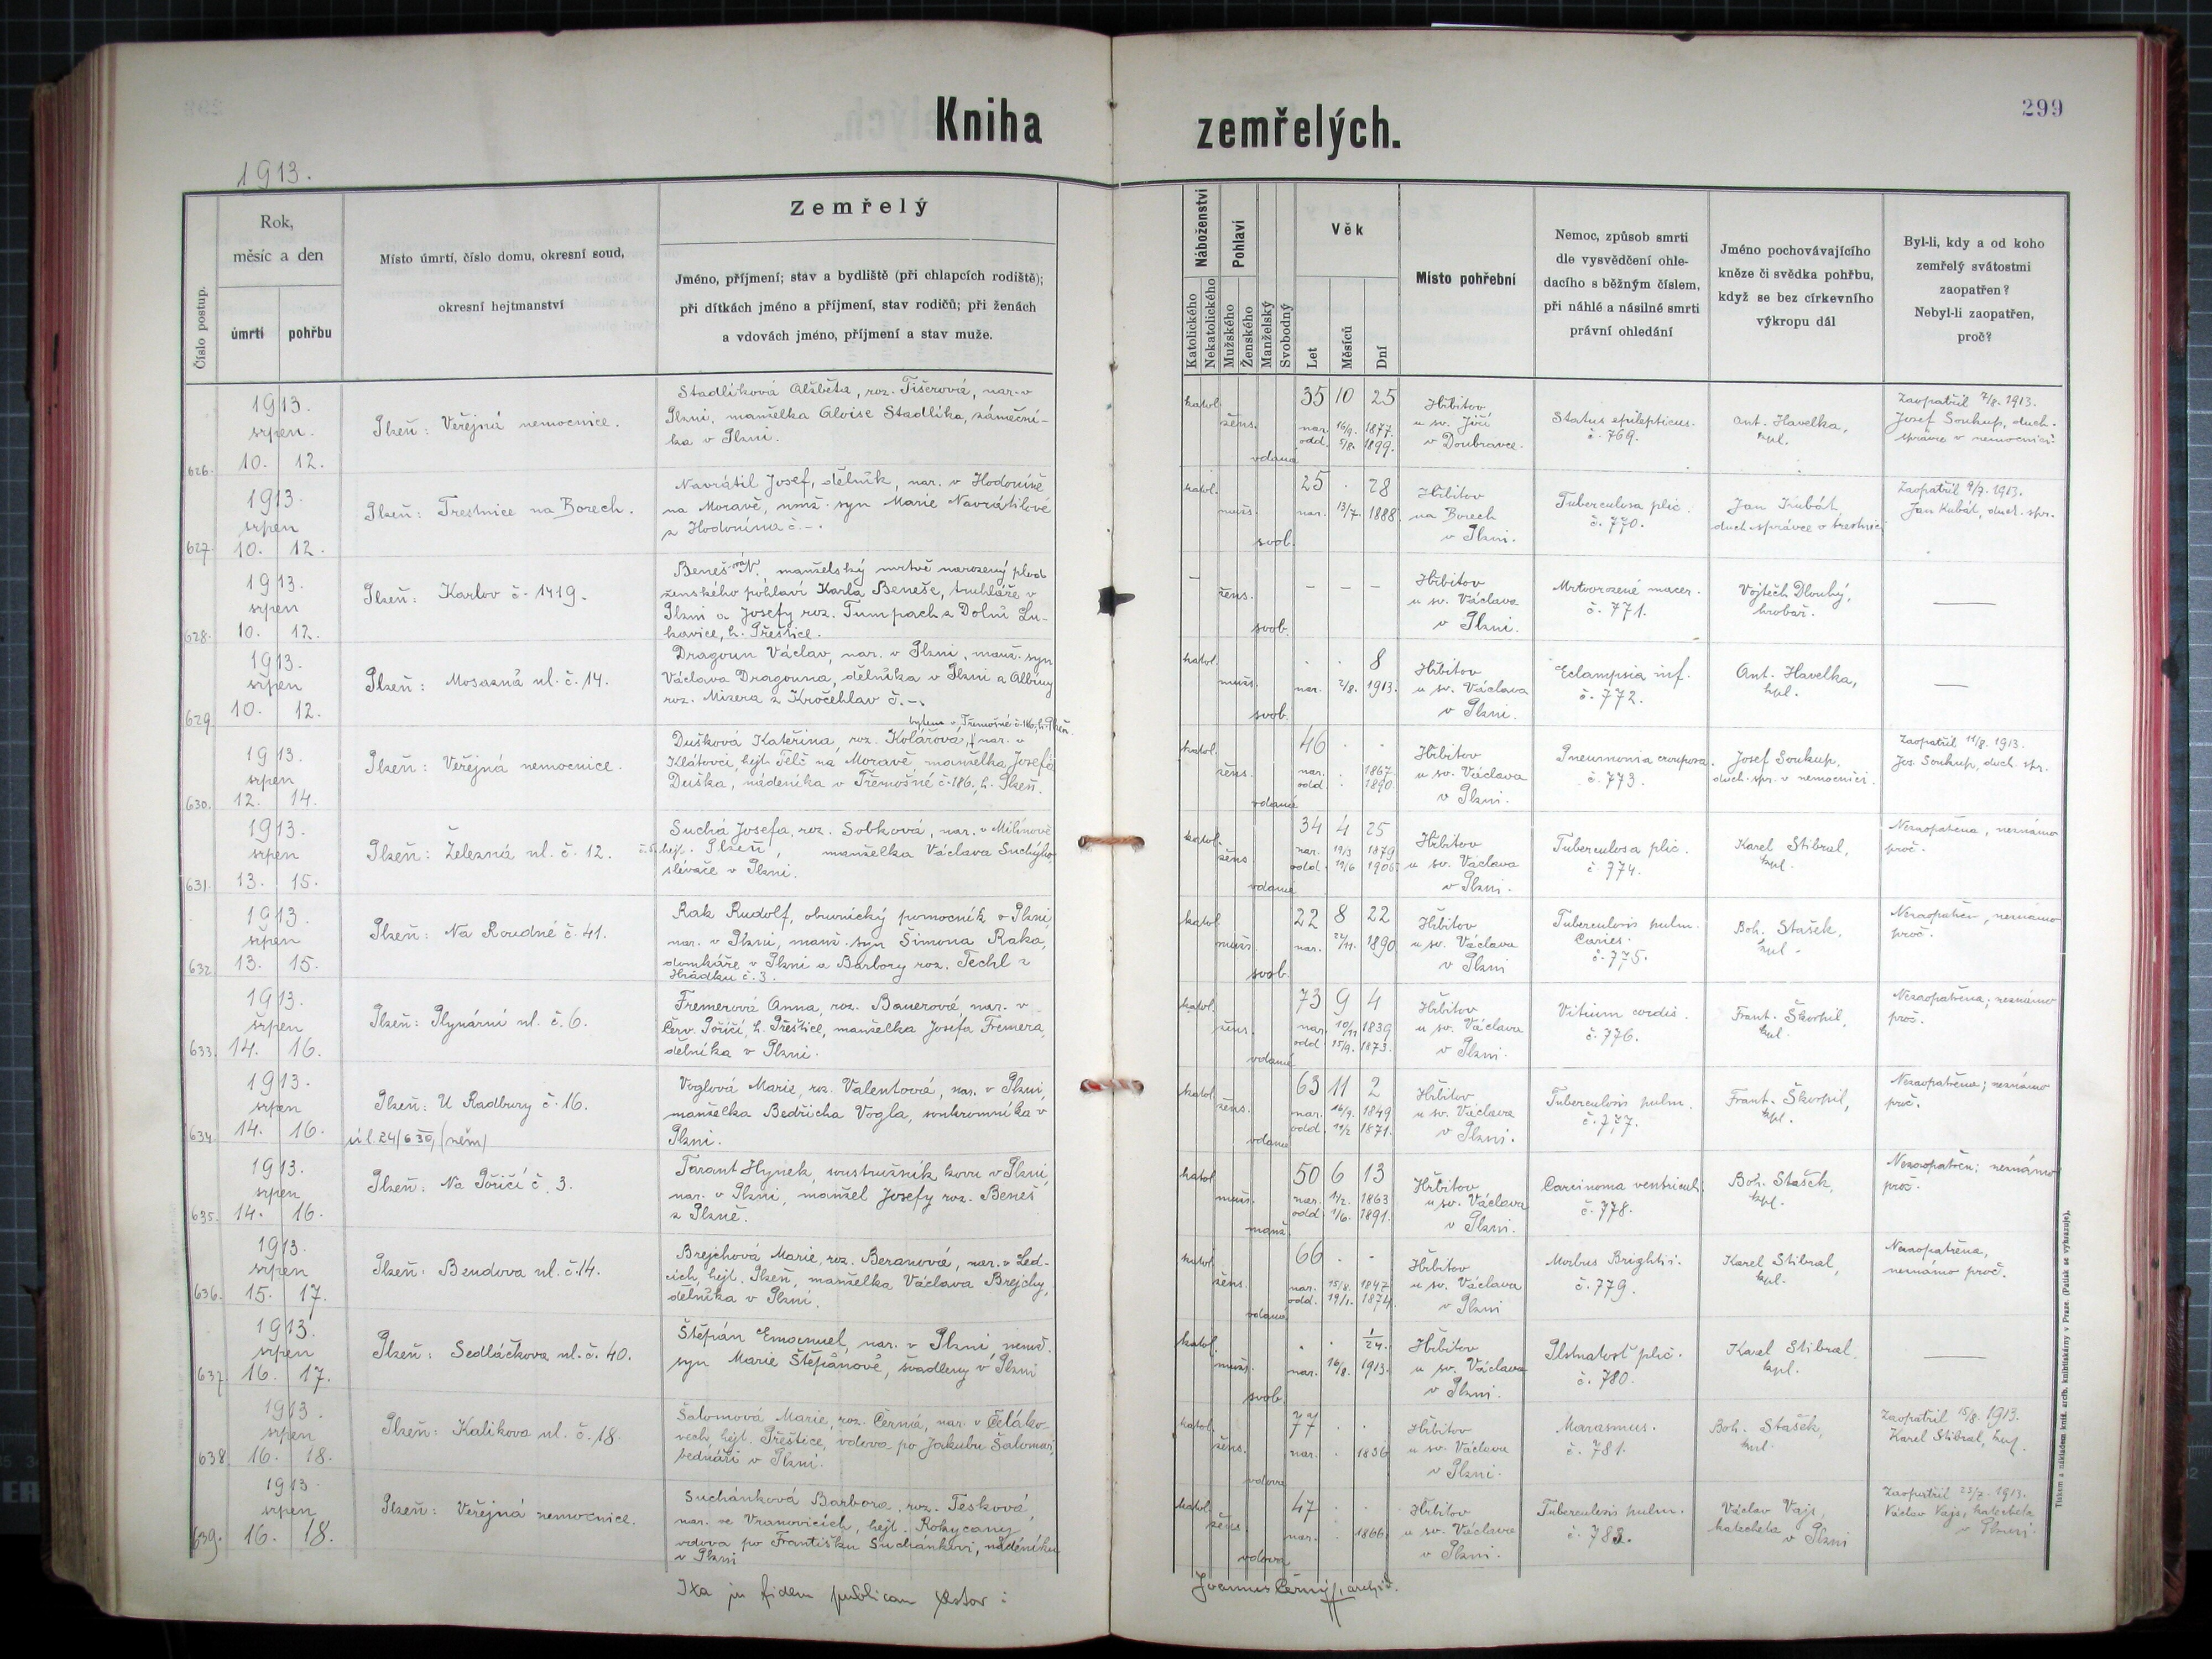 Kniha zemřelých.
299
1913.
Číslo postup.
Rok,
měsíc a den
úmrtí
pohřbu
Místo úmrtí, číslo domu, okresní soud,
okresní hejtmanství
Zemřelý
Jméno, příjmení; stav a bydliště (při chlapcích rodiště);
při dítkách jméno a příjmení, stav rodičů; při ženách
a vdovách jméno, příjmení a stav muže.
Náboženství
Katolického
Nekatolického
Pohlaví
Mužského
Ženského
Manželský
Svobodný
Věk
Let
Měsíců
Dní
Místo pohřební
Nemoc, způsob smrti
dle vysvědčení ohle-
dacího s běžným číslem,
při náhlé a násilné smrti
právní ohledání
Jméno pochovávajícího
kněze či svědka pohřbu,
když se bez církevního
výkropu dál
Byl-li, kdy a od koho
zemřelý svátostmi
zaopatřen?
Nebyl-li zaopatřen,
proč?
626.
1913.
srpen.
10. 12.
Plzeň: Veřejná nemocnice.
Stadlíková Alžběta, roz. Tišerová, nar. v
Plzni, manželka Aloise Stadlíka, zámeční-
ka v Plzni.
katol.
žens.
vdaná
35 10 25
nar. 16/9. 1877.
odd. 5/8. 1899.
Hřbitov
u sv. Jiří
v Doubravce.
Status epilepticus.
č. 769.
Ant. Havelka,
kpl.
Zaopatřil 7/8. 1913.
Josef Soukup, duch.
správce v nemocnici.
627.
1913
srpen
10. 12.
Plzeň: Trestnice na Borech.
Navrátil Josef, dělník, nar. v Hodoníně
na Moravě, nmž. syn Marie Navrátilové
z Hodonína č. -.
katol.
mužs.
svob.
25 . 28
nar. 13/7. 1888.
Hřbitov
na Borech
v Plzni.
Tuberculosa plic.
č. 770.
Jan Kubát,
duch. správce v trestnici
Zaopatřil 9/7. 1913.
Jan Kubát, duch. spr.
628.
1913
srpen
10. 12.
Plzeň: Karlov č. 1419.
Beneš-ová N., manželský mrtvě narozený plod
ženského pohlaví Karla Beneše, truhláře v
Plzni a Josefy roz. Tumpach z Dolní Lu-
kavice, h. Přeštice.
–
žens.
svob.
– – –
Hřbitov
u sv. Václava
v Plzni.
Mrtvorozené macer.
č. 771.
Vojtěch Dlouhý,
hrobař.
—
629.
1913.
srpen
10. 12.
Plzeň: Mosazná ul. č. 14.
Dragoun Václav, nar. v Plzni, manž. syn
Václava Dragouna, dělníka v Plzni a Albíny
roz. Mizera z Kročehlav č. -.
katol.
mužs.
svob.
. . 8
nar. 2/8. 1913.
Hřbitov
u sv. Václava
v Plzni.
Eclampsia inf.
č. 772.
Ant. Havelka,
kpl.
—
630.
1913
srpen
12. 14.
Plzeň: Veřejná nemocnice.
bytem v Třemošné č. 186, h. Plzeň.
Dušková Kateřina, roz. Kolářová, nar. v
Klátovci, hejt. Telč na Moravě, manželka Josefa
Duška, nádeníka v Třemošné č. 186, h. Plzeň.
katol.
žens.
vdaná
46 . .
nar. . 1867.
odd. . 1890.
Hřbitov
u sv. Václava
v Plzni.
Pneumonia crouposa.
č. 773.
Josef Soukup,
duch. spr. v nemocnici.
Zaopatřil 11/8. 1913.
Jos. Soukup, duch. spr.
631.
1913.
srpen
13. 15.
Plzeň: Železná ul. č. 12.
Suchá Josefa, roz. Sobková, nar. v Milínově
č. 5. hejt. Plzeň, manželka Václava Suchýho
slévače v Plzni.
katol.
žens.
vdaná
34 4 25
nar. 19/3 1879
odd. 19/6 1906.
Hřbitov
u sv. Václava
v Plzni.
Tuberculosa plic.
č. 774.
Karel Stibral,
kpl.
Nezaopatřena, neznámo
proč.
632.
1913.
srpen
13. 15.
Plzeň: Na Roudné č. 41.
Rak Rudolf, obuvnický pomocník v Plzni,
nar. v Plzni, manž. syn Šimona Raka,
domkáře v Plzni a Barbory roz. Techl z
Hrádku č. 3.
katol.
mužs.
svob.
22 8 22
nar. 22/11. 1890.
Hřbitov
u sv. Václava
v Plzni
Tuberculosis pulm.
Caries.
č. 775.
Boh. Stašek,
kpl.
Nezaopatřen, neznámo
proč.
633.
1913.
srpen
14. 16.
Plzeň: Plynární ul. č. 6.
Fremerová Anna, roz. Bauerová, nar. v
Červ. Poříčí, h. Přeštice, manželka Josefa Fremera,
dělníka v Plzni.
katol.
žens.
vdaná
73 9 4
nar. 10/11 1839
odd. 15/9. 1873.
Hřbitov
u sv. Václava
v Plzni.
Vitium cordis.
č. 776.
Frant. Škorpil,
kpl.
Nezaopatřena; neznámo
proč.
634.
1913.
srpen
14. 16.
Plzeň: U Radbuzy č. 16.
úl. 24/630/(něm)
Voglová Marie, roz. Valentová, nar. v Plzni,
manželka Bedřicha Vogla, soukromníka v
Plzni.
katol.
žens.
vdaná
63 11 2
nar. 16/9. 1849
odd. 19/2 1871.
Hřbitov
u sv. Václava
v Plzni.
Tuberculosis pulm.
č. 777.
Frant. Škorpil,
kpl.
Nezaopatřena; neznámo
proč.
635.
1913.
srpen
14. 16.
Plzeň: Na Poříčí č. 3.
Tarant Hynek, soustružník kovu v Plzni,
nar. v Plzni, manžel Josefy roz. Beneš
z Plzně.
katol
mužs.
manž.
50 6 13
nar. 1/2. 1863
odd. 1/6. 1891.
Hřbitov
u sv. Václava
v Plzni.
Carcinoma ventriculi.
č. 778.
Boh. Stašek,
kpl.
Nezaopatřen; neznámo
proč.
636.
1913.
srpen
15. 17.
Plzeň: Bendova ul. č. 14.
Brejchová Marie, roz. Beranová, nar. v Led-
cích, hejt. Plzeň, manželka Václava Brejchy,
dělníka v Plzni.
katol.
žens.
vdaná
66 . .
nar. 15/8. 1847
odd. 19/1. 1874.
Hřbitov
u sv. Václava
v Plzni
Morbus Brightii.
č. 779.
Karel Stibral,
kpl.
Nezaopatřena,
neznámo proč.
637.
1913.
srpen
16. 17.
Plzeň: Sedláčkova ul. č. 40.
Štěpán Emanuel, nar. v Plzni nemž.
syn Marie Štěpánové, švadleny v Plzni
katol.
mužs.
svob.
. . 1/24.
nar. 16/8. 1913.
Hřbitov
u sv. Václava
v Plzni.
Plstnatosť plic.
č. 780.
Karel Stibral.
kpl.
—
638.
1913.
srpen
16. 18.
Plzeň: Kalikova ul. č. 18.
Šalomová Marie, roz. Černá, nar. v Čeláko-
vech, hejt. Přeštice, vdova po Jakubu Šalomovi,
bednáři v Plzni.
katol.
žens.
vdova
77 .
nar. . 1836
Hřbitov
u sv. Václava
v Plzni.
Marasmus.
č. 781.
Boh. Stašek,
kpl.
Zaopatřil 15/8. 1913.
Karel Stibral, kpl.
639.
1913
srpen
16. 18.
Plzeň: Veřejná nemocnice.
Suchánková Barbora, roz. Tesková,
nar. ve Vranovicích, hejt. Rokycany
vdova po Františku Suchánkovi, nádeníku
v Plzni
katol.
žens.
vdova
47 . .
nar. . 1866.
Hřbitov
u sv. Václava
v Plzni.
Tuberculosis pulm.
č. 783.
Václav Vajs,
katecheta
v Plzni
Zaopatřil 25/7. 1913.
Václav Vajs, katecheta
v Plzni
Ita in fidem publicam testor:
Joannes Černý, archid.
Tiskem a nákladem kníž. arcib. knihtiskárny v Praze. (Patisk se vyhrazuje).